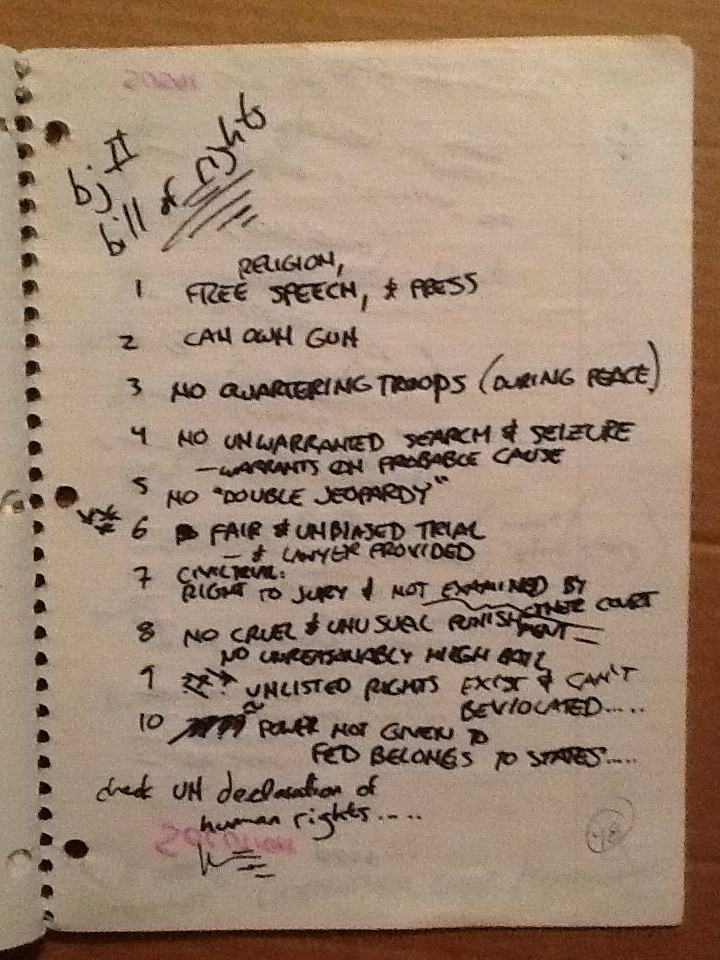 bj II
bill of rights
RELIGION,
1 FREE SPEECH, & PRESS
2 CAN OWN GUN
3 NO QUARTERING TROOPS (DURING PEACE)
4 NO UNWARRANTED SEARCH & SEIZURE
– WARRANTS ON PROBABLE CAUSE
5 NO "DOUBLE JEOPARDY"
6 FAIR & UNBIASED TRIAL
– & LAWYER PROVIDED
7 CIVIL TRIAL:
RIGHT TO JURY & NOT EXAMINED BY
OTHER COURT
8 NO CRUEL & UNUSUAL PUNISHMENT
NO UNREASONABLY HIGH BAIL
9 UNLISTED RIGHTS EXIST & CAN'T
BE VIOLATED.....
10 POWER NOT GIVEN TO
FED BELONGS TO STATES.....
check UN declaration of
human rights.....
48